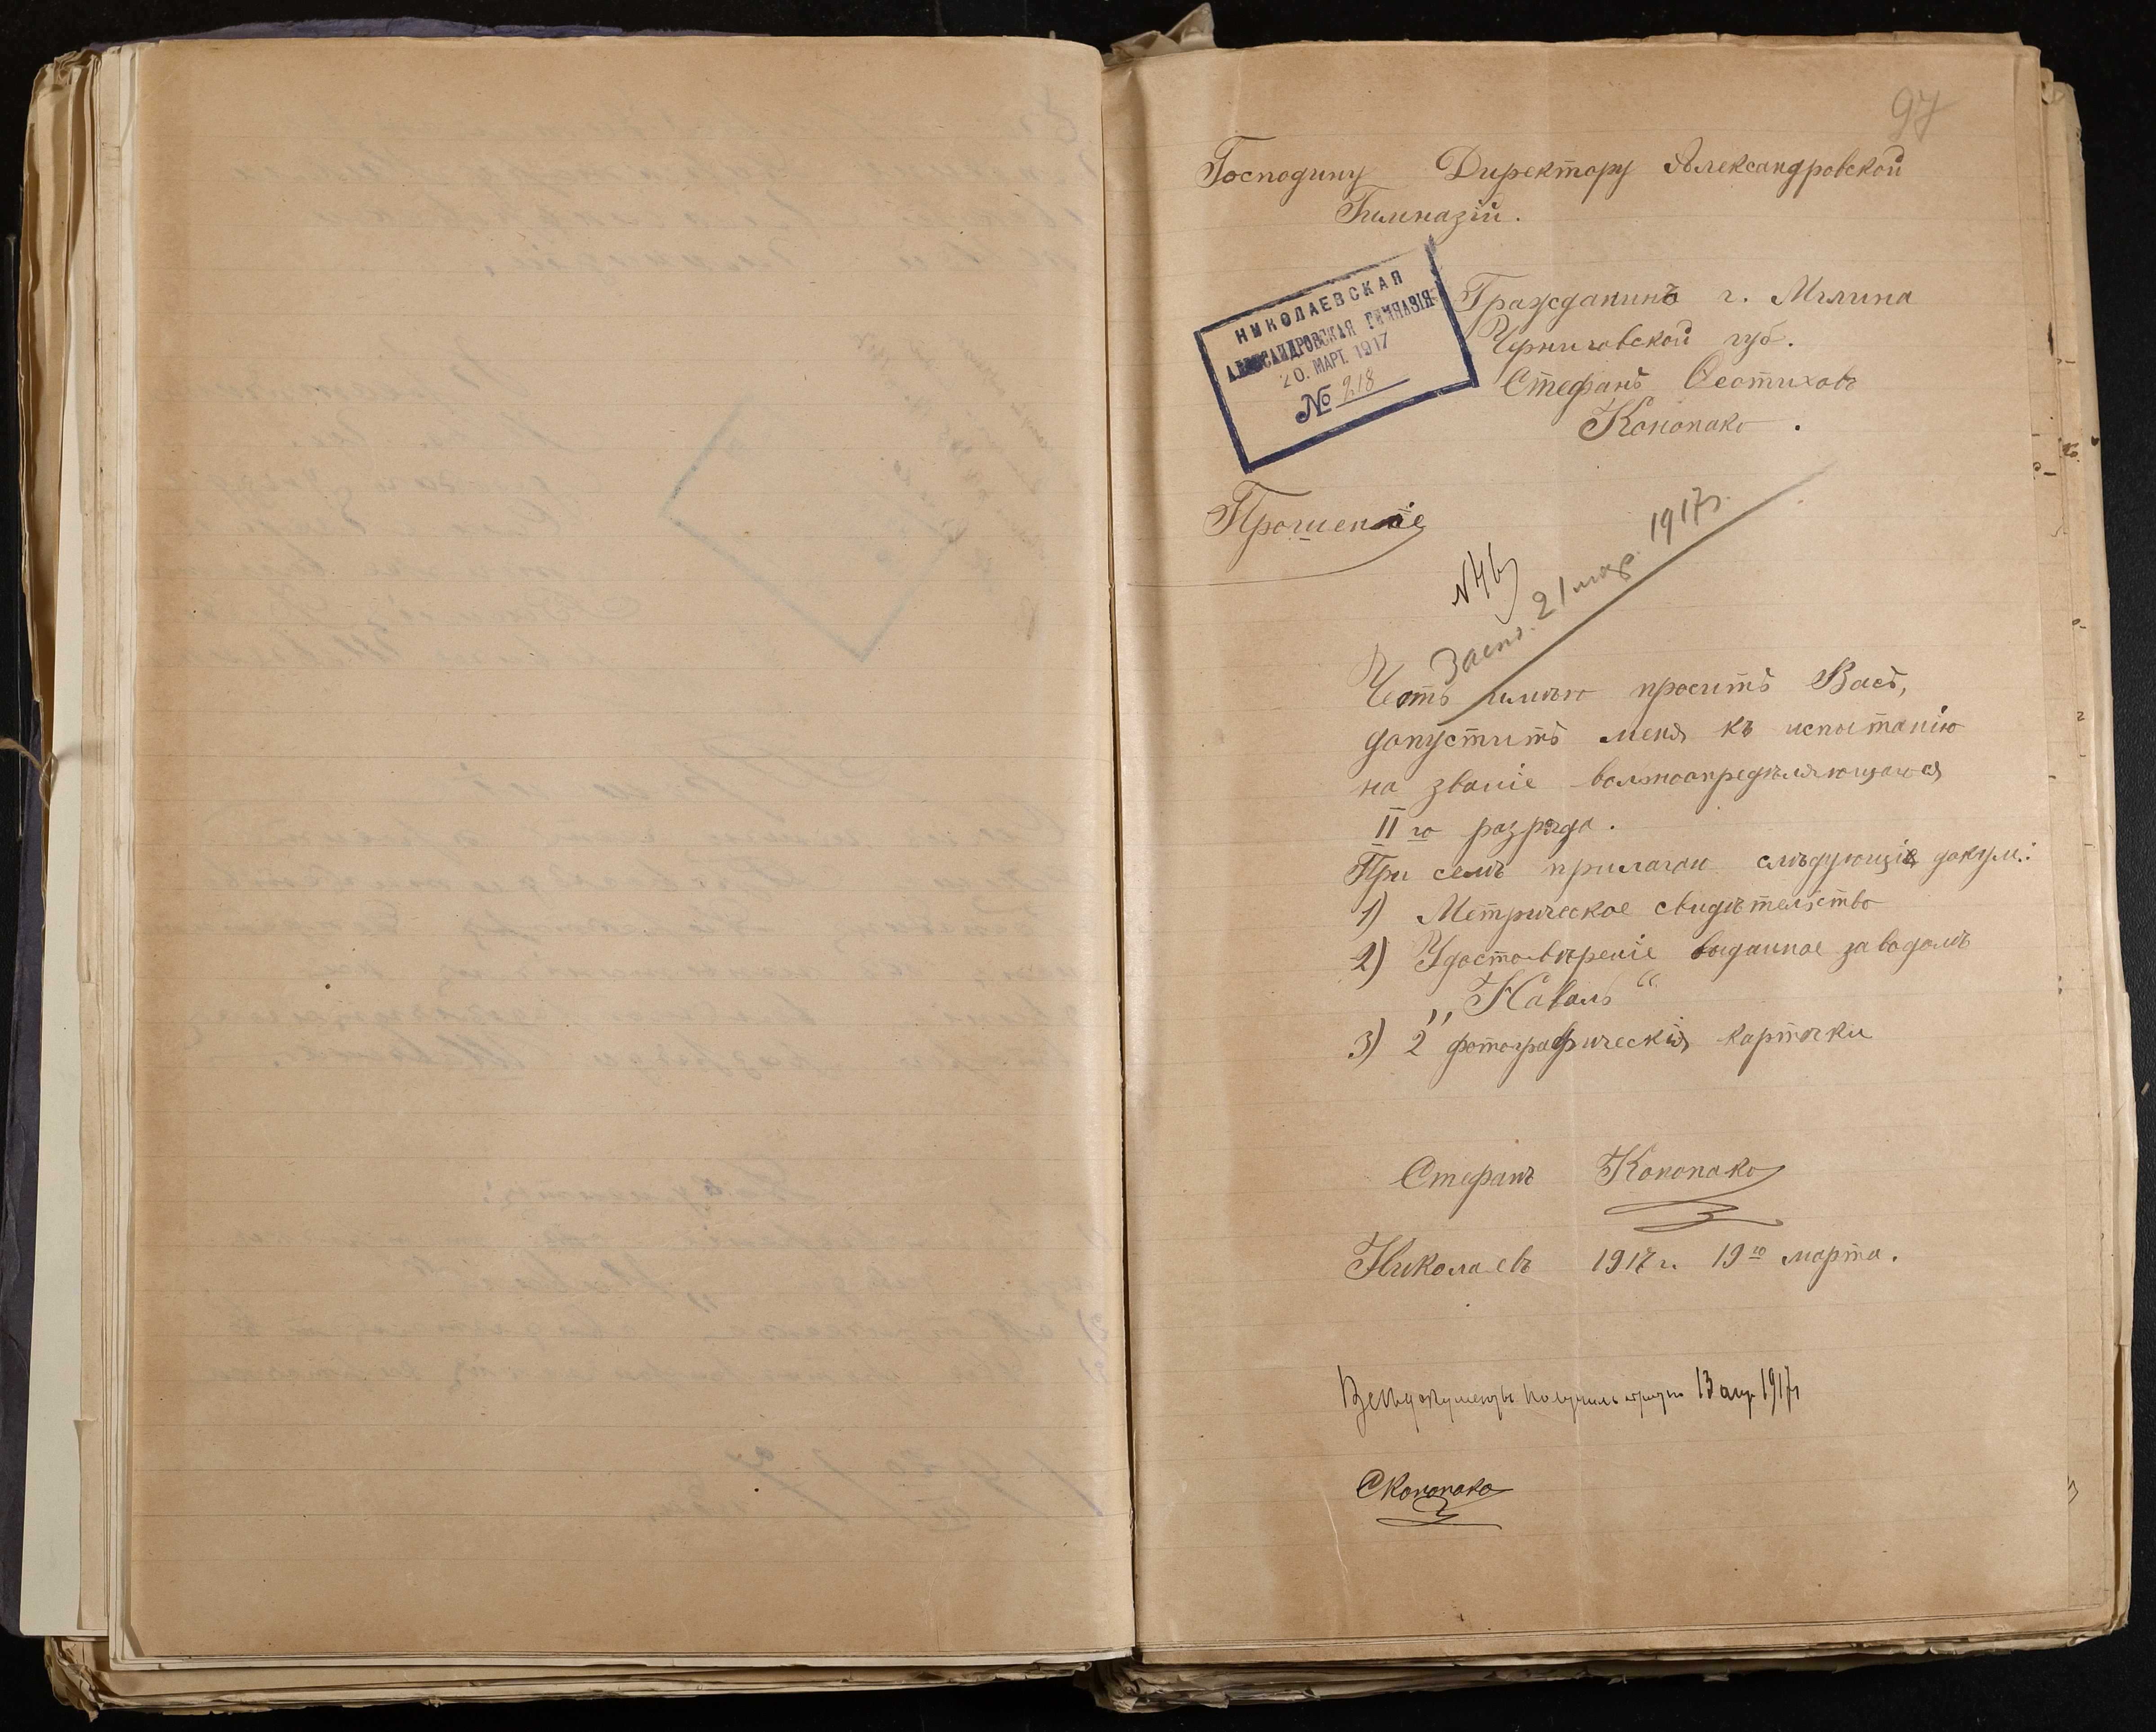 97
Господину Директору Александровской
Гимназіи.
НИКОЛАЕВСКАЯ
АЛЕКСАНДРОВСКАЯ ГИМНАЗІЯ
20. МАРТ. 1917
№ 218
Гражданинъ г. Мглина
Черниговской губ.
Стефанъ Ѳеотиховъ
Конопако.
Прошеніе
N 46
21 мар. 1917 г.
Честь имѣю проситъ Васъ,
допуститъ меня къ испытанію
на званіе вольноопредѣляющагося
II го разряда.
При семъ прилагаю слѣдующіе докум.:
1) Метрическое свидѣтельство
2) Удостовѣреніе выданное заводомъ
„Наваль“
3) 2 фотографическія карточки
Стефанъ Конопако
Николаевъ 1917 г. 19го марта.
документы получилъ 13 апр 1917 г
СКонопако